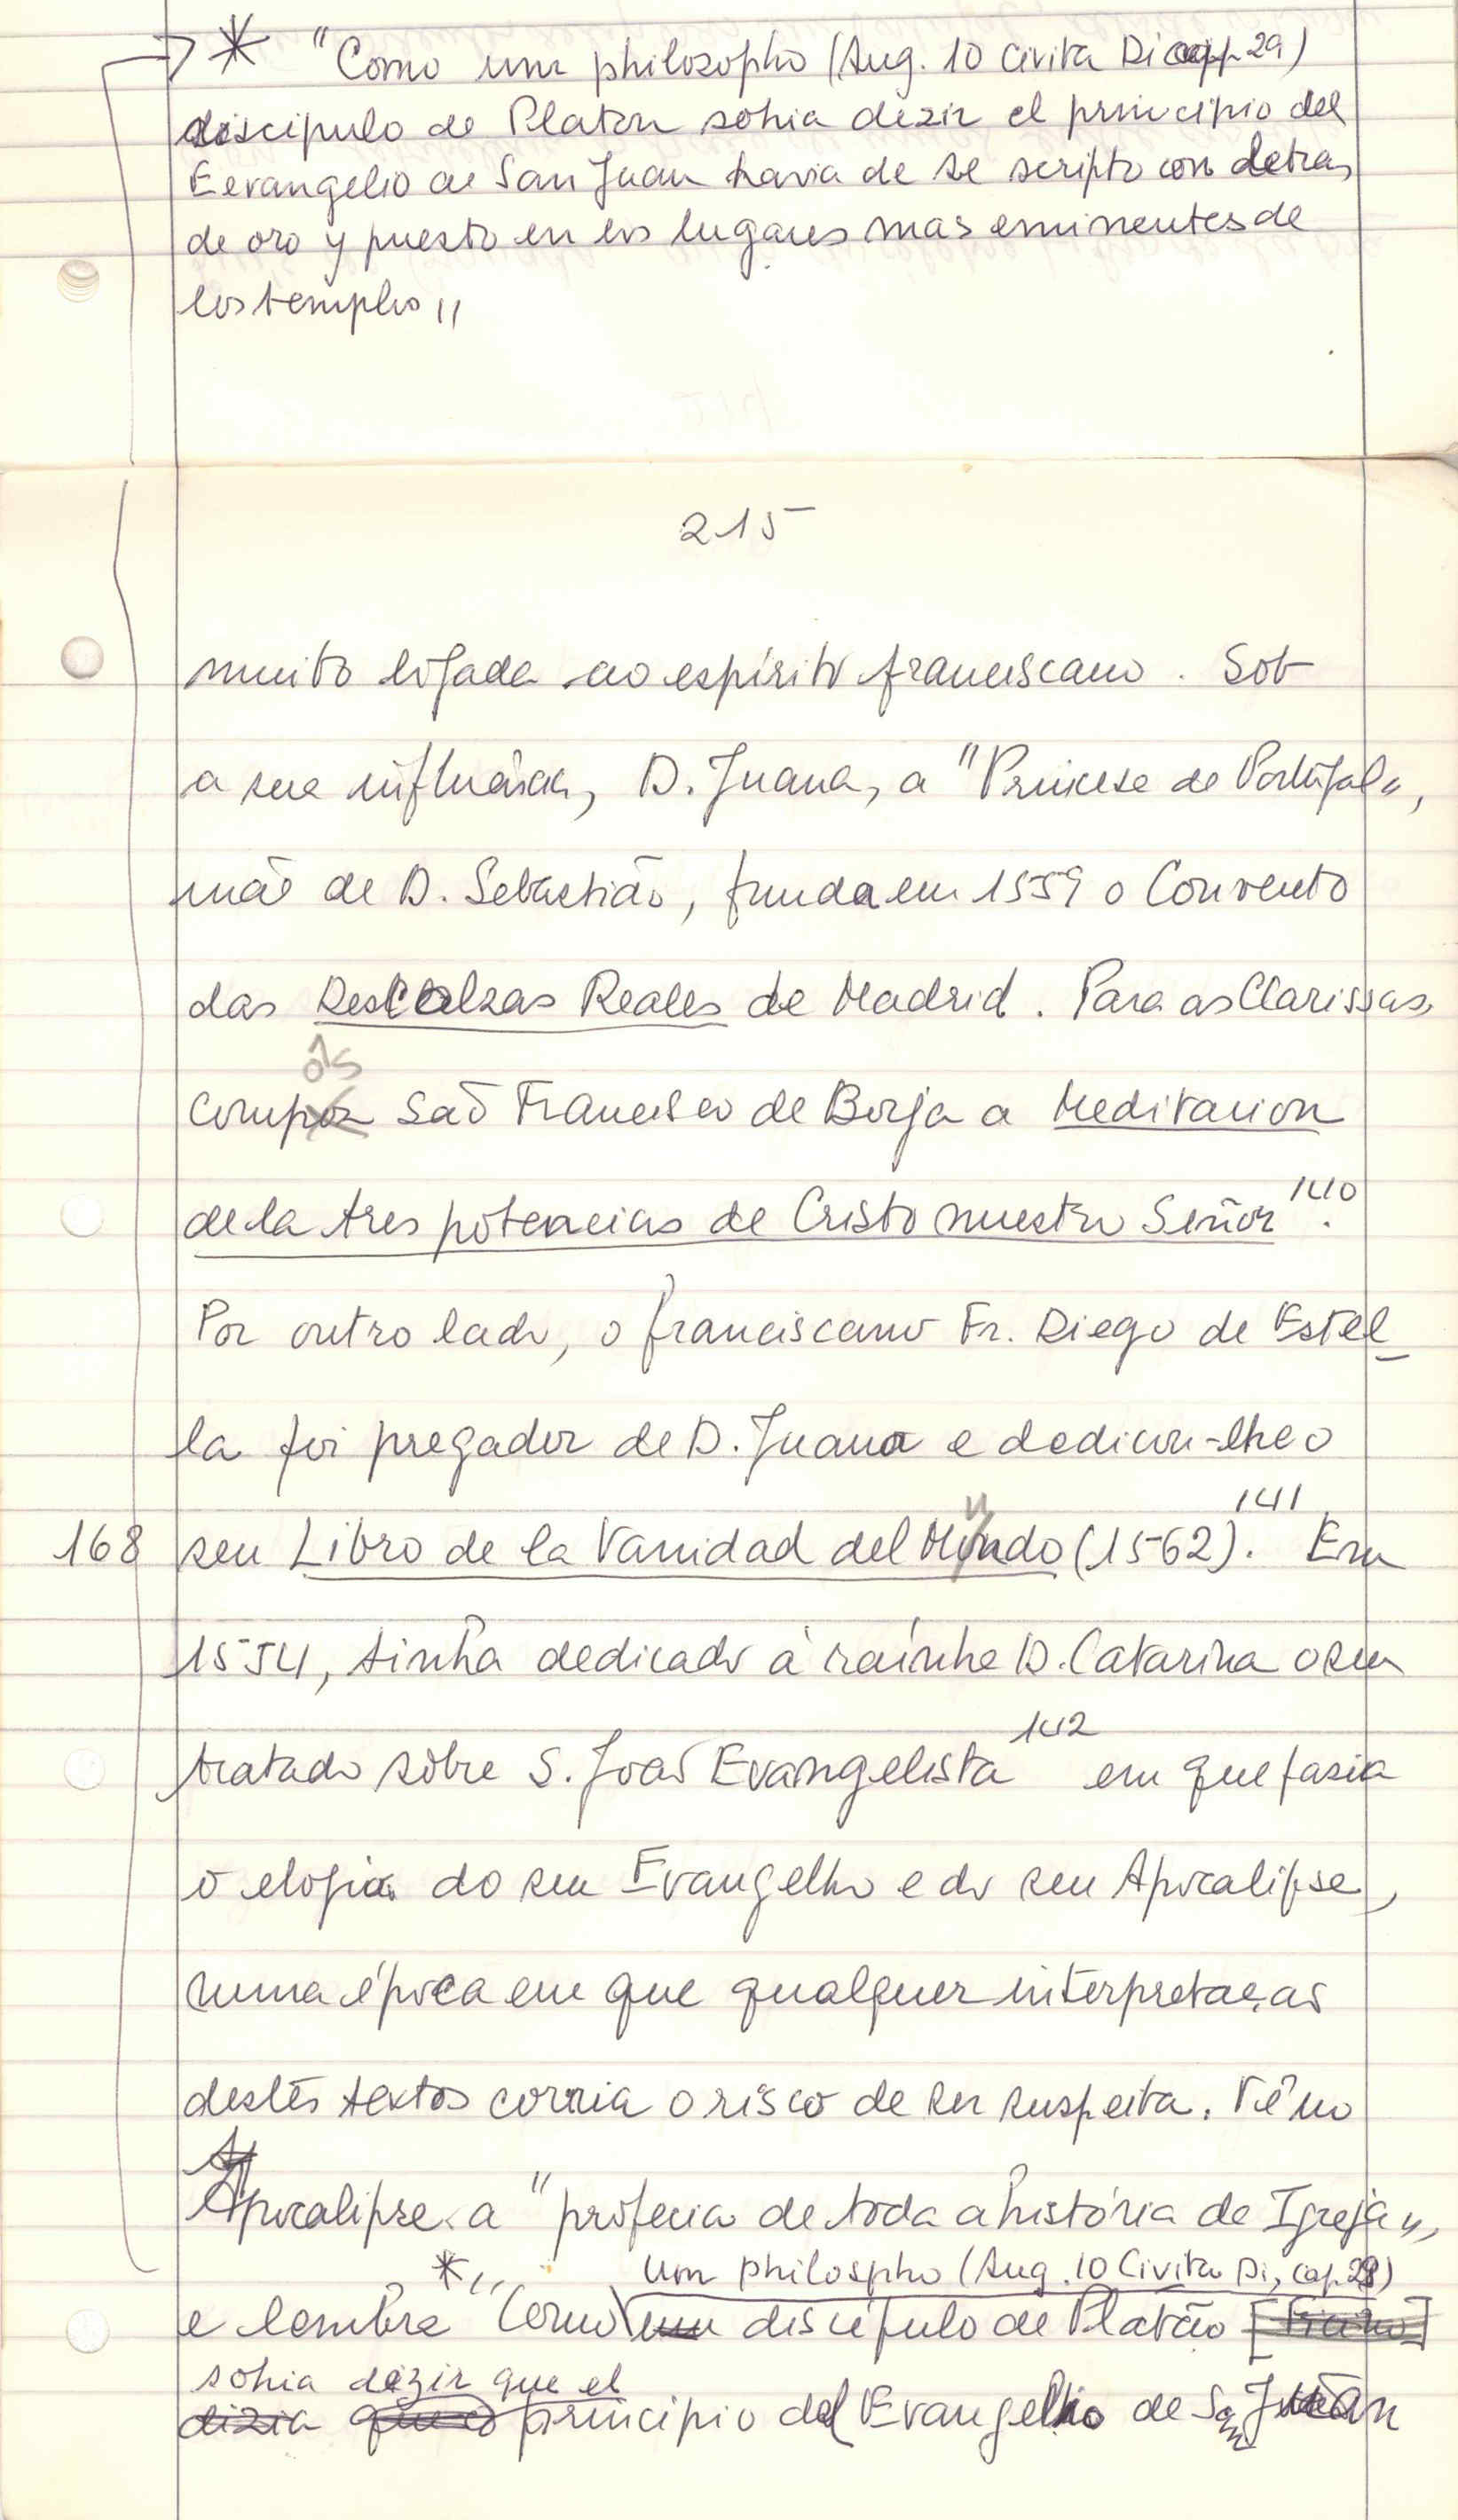 * "Como um philosopho (Aug. 10 Civita Di cap. 29)
discipulo de Platon sohia dezir el principio del
Eevangelio de San Juan havia de se scripto con letras
de oro y puesto en los lugares mas eminentes de
los templos"
215
muito ligada ao espírito franciscano. Sob
a sua influência, D. Juana, a "Princesa de Portugal",
mãe de D. Sebastião, funda em 1559 o Convento
das Descalzas Reales de Madrid. Para as Clarissas,
ôs
compoz São Francisco de Borja a Meditacion
de la tres potencias de Cristo nuestro Señor 140.
Por outro lado, o franciscano Fr. Diego de Estel-
la foi pregador de D. Juana e dedicou-lhe o
168 seu Libro de la Vanidad del Mundo (1562). 141 Em
1554, tinha dedicado à raínha D. Catarina o seu
tratado sôbre S. João Evangelista 142 em que fazia
o elogio do seu Evangelho e do seu Apocalipse,
numa época em que qualquer interpretação
destes textos corria o risco de ser suspeita. Vê no
Apocalipse a "profecia de toda a história da Igreja",
* um philospho (Aug. 10 Civita Di, cap. 29)
e lembra "Como um discípulo de Platão
sohia dezir que el
dizia que o principio del Evangelio de San Juan